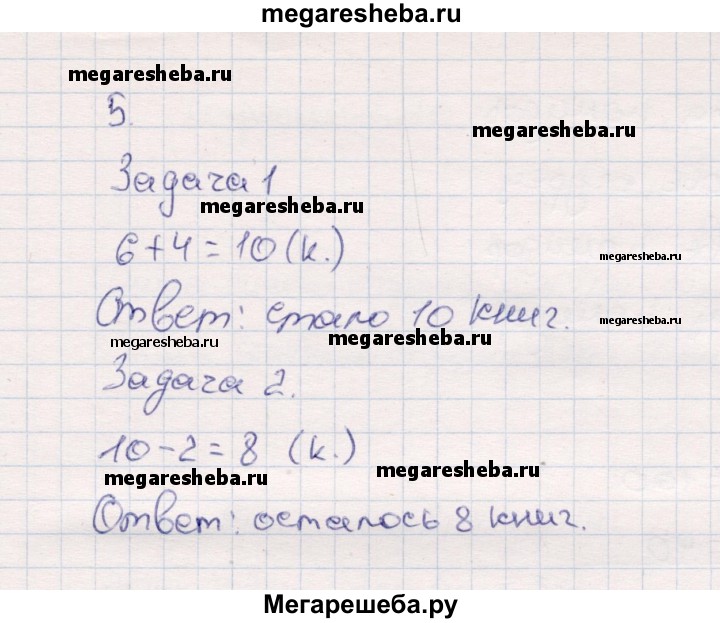 megaresheba.ru
megaresheba.ru
5.
megaresheba.ru
Задача 1
megaresheba.ru
6+4=10 (к.)
megaresheba.ru
Ответ: стало 10 книг.
megaresheba.ru
megaresheba.ru
megaresheba.ru
Задача 2.
10-2=8 (к.)
megaresheba.ru
megaresheba.ru
Ответ: осталось 8 книг.
Мегарешеба.ру